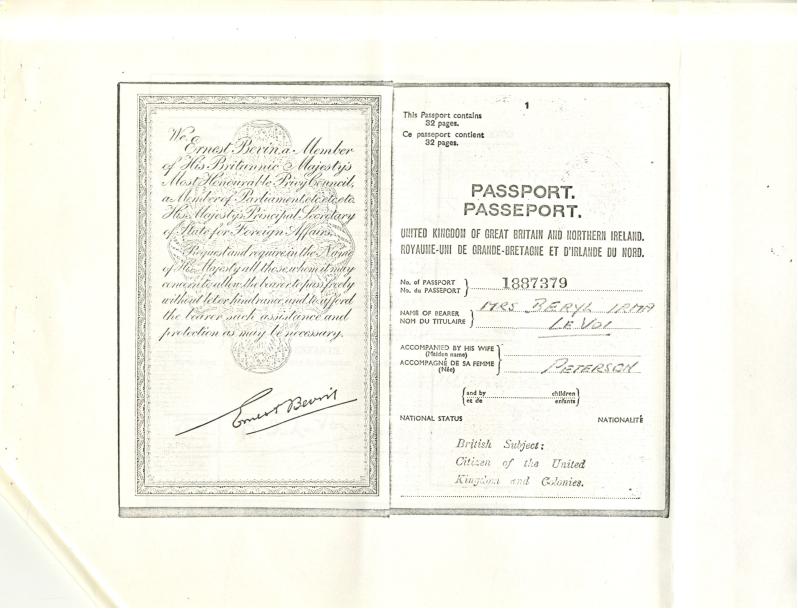 We
Ernest Bevin, a Member
of His Britannic Majesty's
Most Honourable Privy Council,
a Member of Parliament, etc, etc, etc.
His Majesty's Principal Secretary
of State for Foreign Affairs.
Request and require in the Name
of His Majesty all those whom it may
concern to allow the bearer to pass freely
without let or hindrance, and to afford
the bearer such assistance and
protection as may be necessary.
Ernest Bevin
1
This Passport contains
32 pages.
Ce passeport contient
32 pages.
PASSPORT.
PASSEPORT.
UNITED KINGDOM OF GREAT BRITAIN AND NORTHERN IRELAND.
ROYAUME-UNI DE GRANDE-BRETAGNE ET D'IRLANDE DU NORD.
No. of PASSPORT
No. du PASSEPORT
1887379
NAME OF BEARER
NOM DU TITULAIRE
MRS BERYL IRMA
LE VOI
ACCOMPANIED BY HIS WIFE
(Maiden name)
ACCOMPAGNÉ DE SA FEMME
(Née)
PETERSON
and by children
et de enfants
NATIONAL STATUS NATIONALITÉ
British Subject:
Citizen of the United
Kingdom and Colonies.